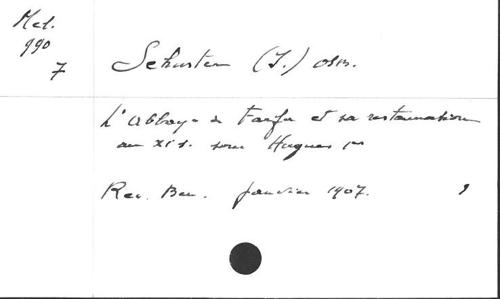 Mel.
990
7
Schuster (I.) OSB.
L'abbaye de Farfa et sa restauration
au XIe s. sous Hugues Ier
Rev. Ben. Janvier 1907.